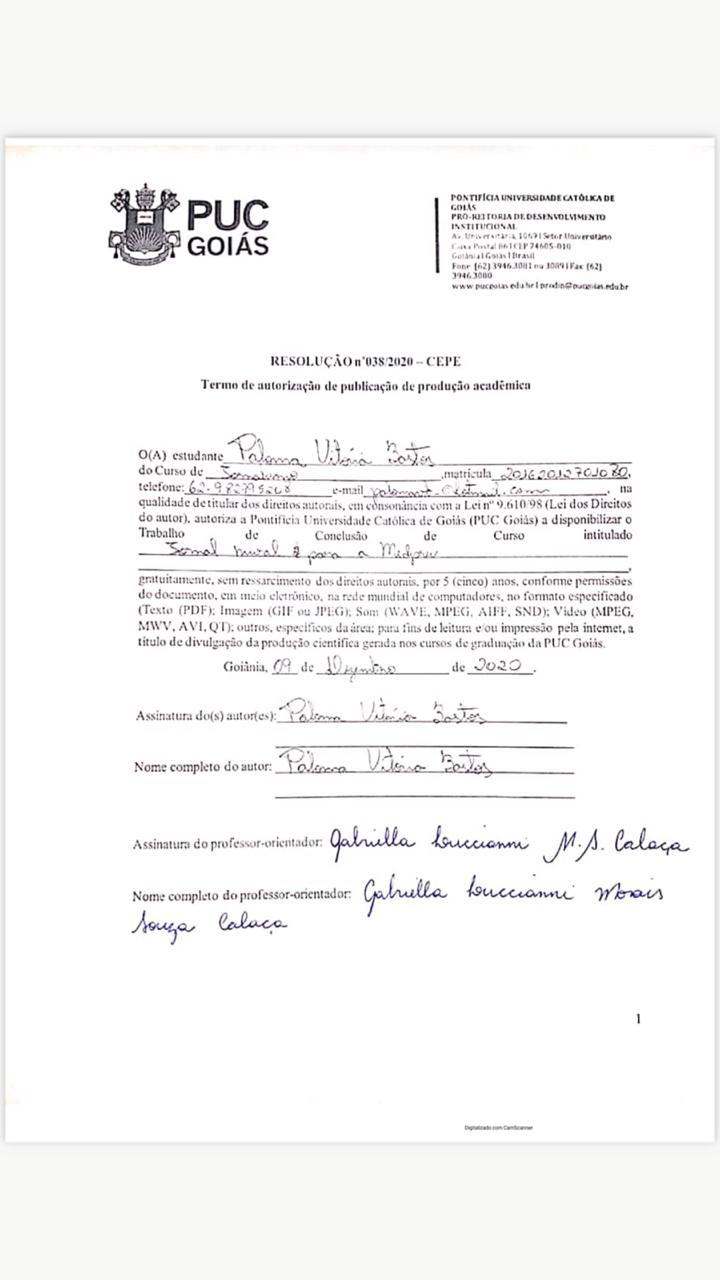 PUC
GOIÁS
PONTIFÍCIA UNIVERSIDADE CATÓLICA DE
GOIÁS
PRÓ-REITORIA DE DESENVOLVIMENTO
INSTITUCIONAL
Av. Universitária, 1069 | Setor Universitário
Caixa Postal 86 | CEP 74605-010
Goiânia | Goiás | Brasil
Fone: (62) 3946.3081 ou 3089 | Fax: (62)
3946.3080
www.pucgoias.edu.br | prodin@pucgoias.edu.br
RESOLUÇÃO n°038/2020 – CEPE
Termo de autorização de publicação de produção acadêmica
O(A) estudante Paloma Vitória Bastos
do Curso de Jornalismo ,matrícula 20162012701080,
telefone: e-mail , na
qualidade de titular dos direitos autorais, em consonância com a Lei nº 9.610/98 (Lei dos Direitos
do autor), autoriza a Pontifícia Universidade Católica de Goiás (PUC Goiás) a disponibilizar o
Trabalho de Conclusão de Curso intitulado
Jornal mural para a
gratuitamente, sem ressarcimento dos direitos autorais, por 5 (cinco) anos, conforme permissões
do documento, em meio eletrônico, na rede mundial de computadores, no formato especificado
(Texto (PDF); Imagem (GIF ou JPEG); Som (WAVE, MPEG, AIFF, SND); Vídeo (MPEG,
MWV, AVI, QT); outros, específicos da área; para fins de leitura e/ou impressão pela internet, a
título de divulgação da produção científica gerada nos cursos de graduação da PUC Goiás.
Goiânia, 09 de Dezembro de 2020.
Assinatura do(s) autor(es): Paloma Vitória Bastos
Nome completo do autor: Paloma Vitória Bastos
Assinatura do professor-orientador: Gabriella Luccianni M. S. Calaça
Nome completo do professor-orientador: Gabriella Luccianni Morais
Souza Calaça
1
Digitalizado com CamScanner